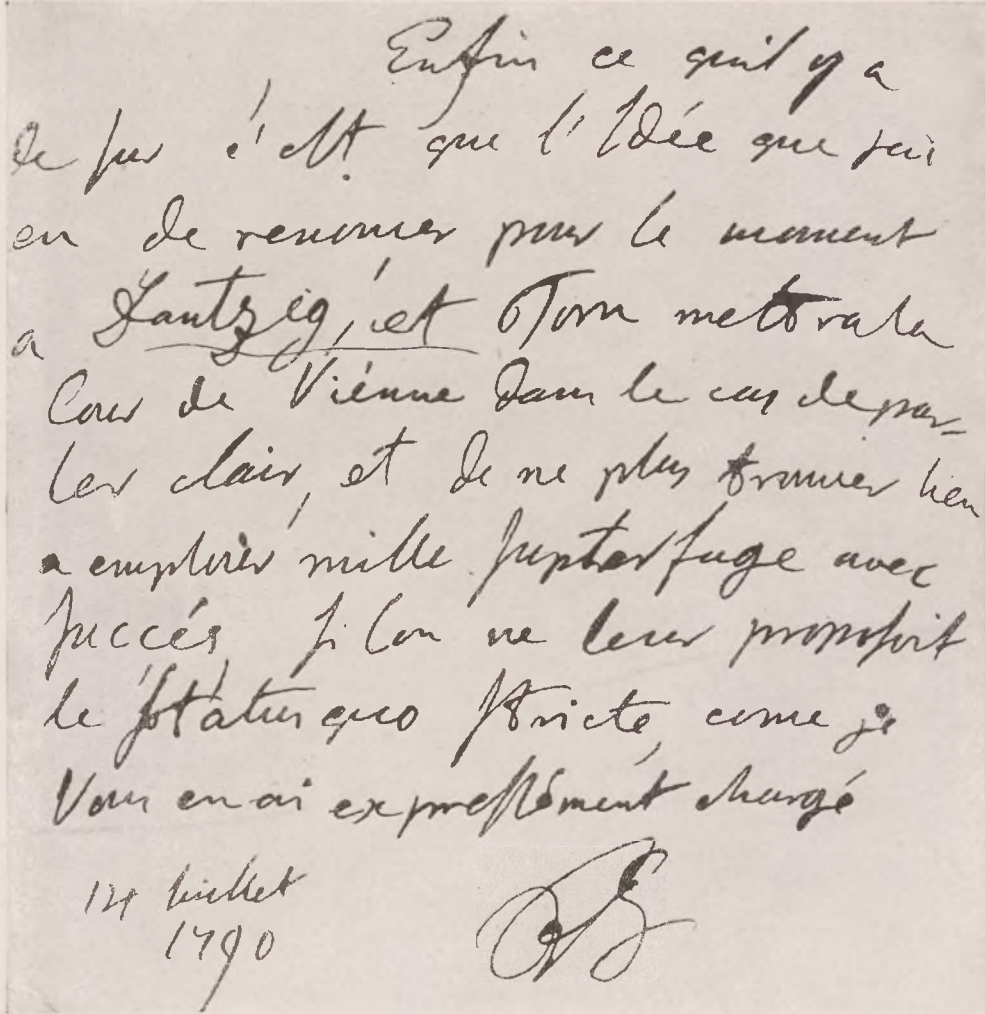 Enfin ce quil y a
de sur c'est que l'Idée que jai
eu de renoncer pour le moment
a Dantzig, et Torn mettra la
Cour de Viénne dans le cas de par-
ler clair, et de ne plus trouver lieu
a emploiér mille supterfuge avec
succés si lon ne leur proposoit
le státus quo stricte, come je
Vous en ai expressément chargé
14 Juillet
1790